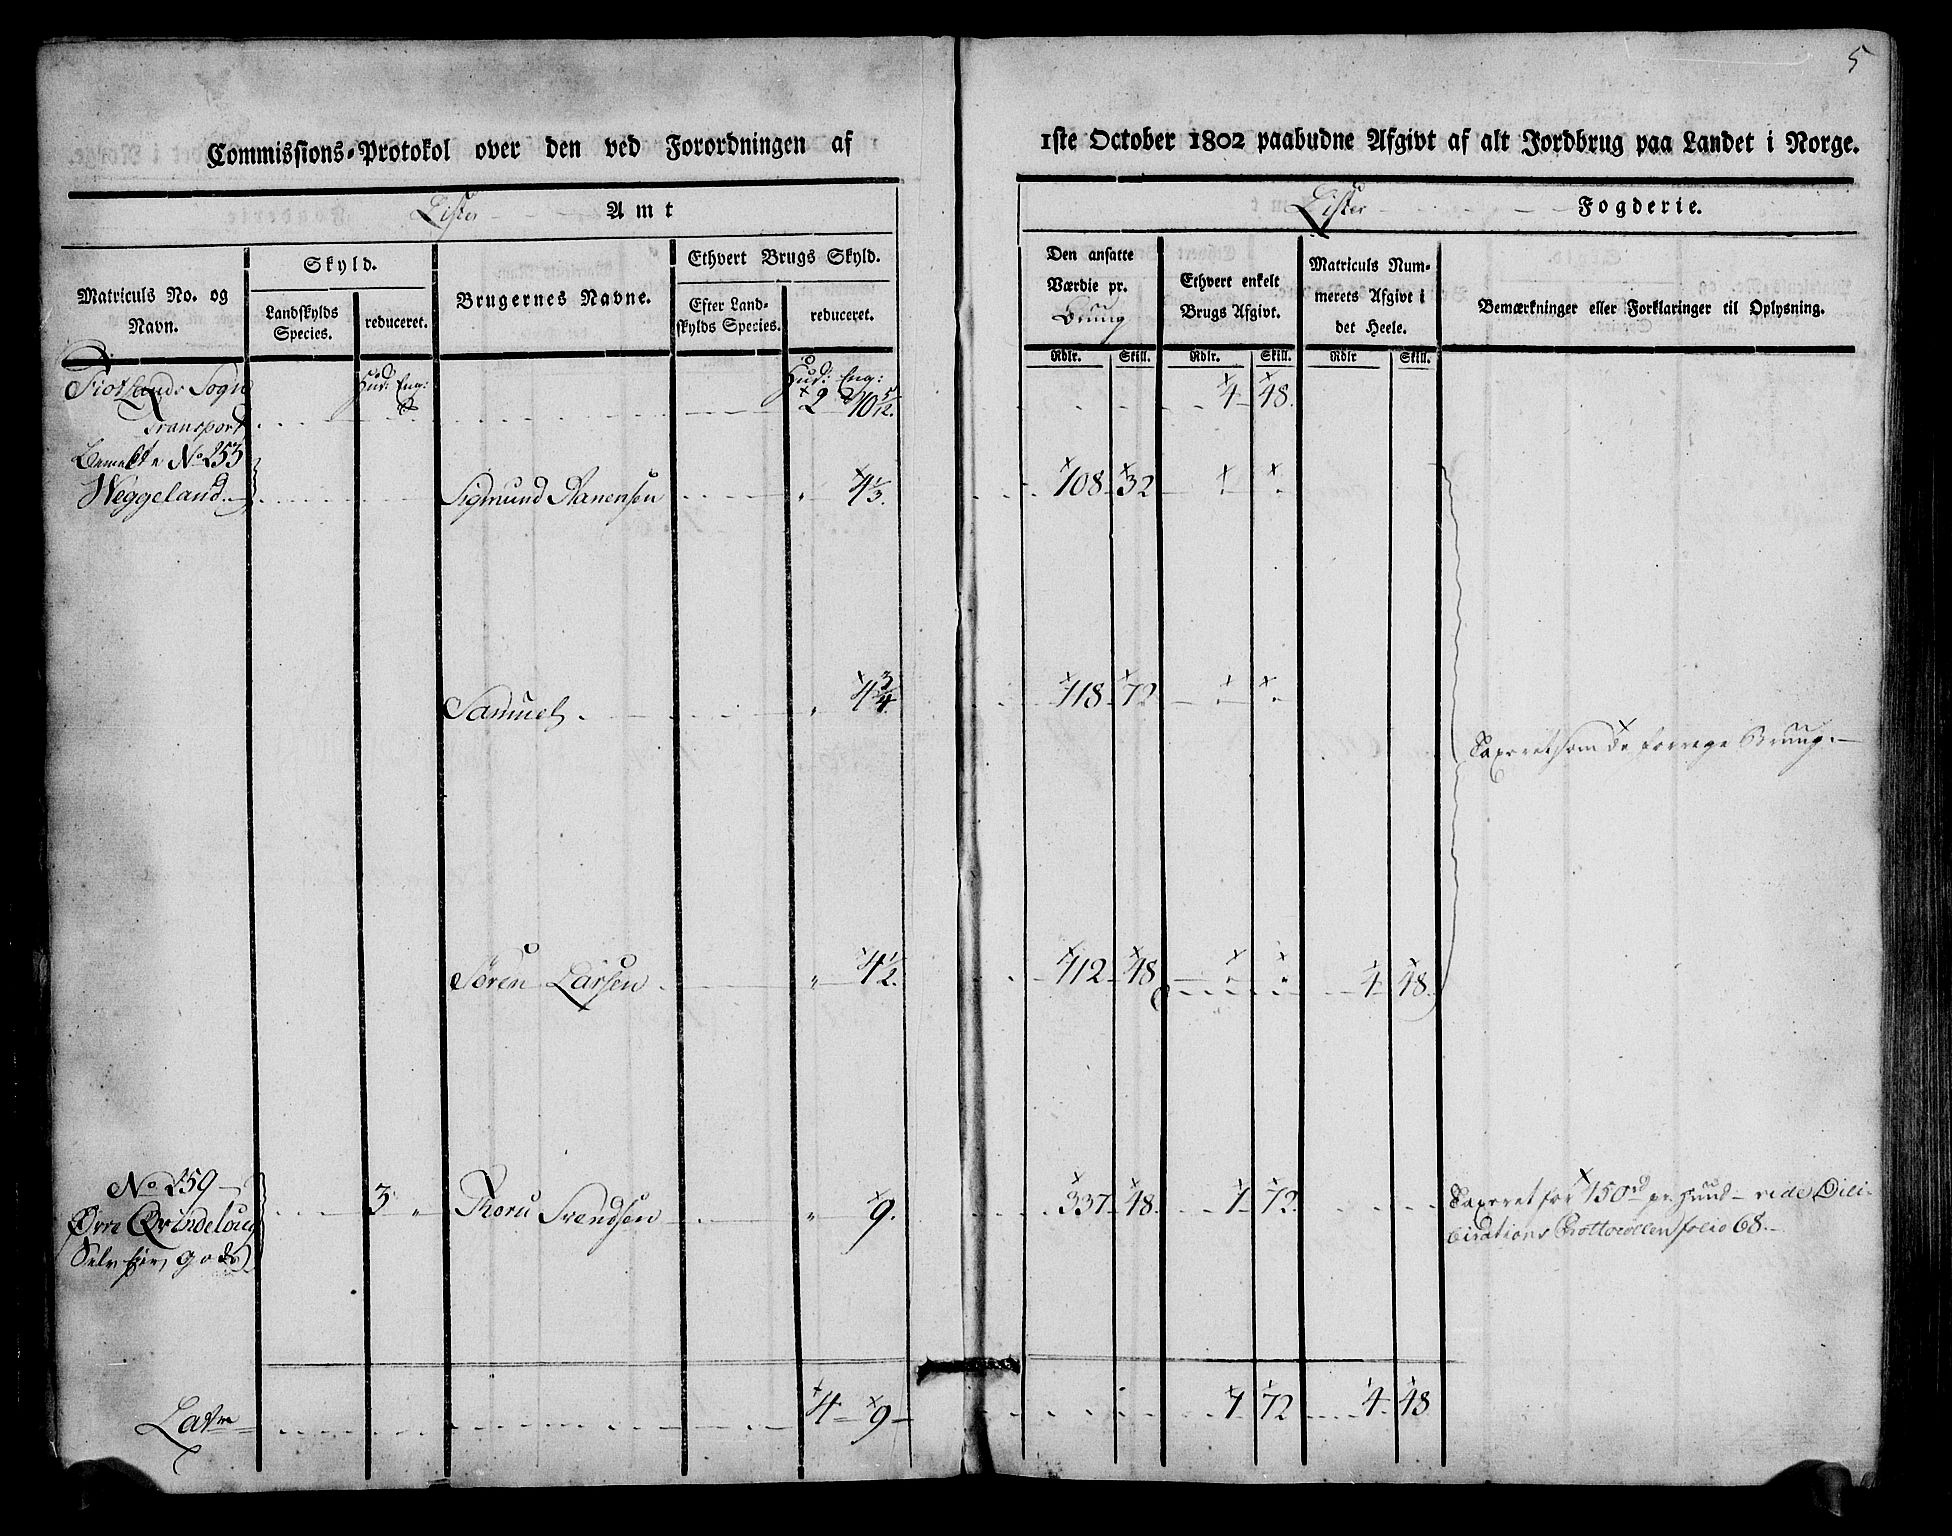 5
Commissions-Protokol over den ved Forordningen af
1ste October 1802 paabudne Afgivt af alt Jordbrug paa Landet i Norge.
Lister Amt
Lister Fogderie.
Matriculs No. og Navn.
Skyld.
Landskylds Species.
reduceret.
Brugernes Navne.
Ethvert Brugs Skyld.
Efter Landskylds Species.
reduceret.
Den ansatte Værdie pr. Bruug
Ethvert enkelt Brugs Afgivt.
Matriculs Nummerets Afgivt i det Heele.
Bemærkninger eller Forklaringer til Oplysning.
Rdlr. Skill. Rdlr. Skill. Rdlr Skill.
Fiotlands Sogn Hud: Eng: Hud: Eng:
Transport 2 10 5/12. 4 48.
Bemelte No 253
Weggeland Sigmund Aanensen " 4 1/3. 108 32
Samuel " 4 3/4. 118 72
Taxeret som de forrige Bruug.
Søren Larsen " 4 1/2. 112 48 4 48.
No 259
Øvre Qvindeloug 3 " Thoru Svendsen " 9. 337 48. 1 72. Taxeret for 150 rd pr. Huud vide Deli-
Selv Eier Gods berations Prottocollen folio 68.
Latus 4 9 1 72 4 48